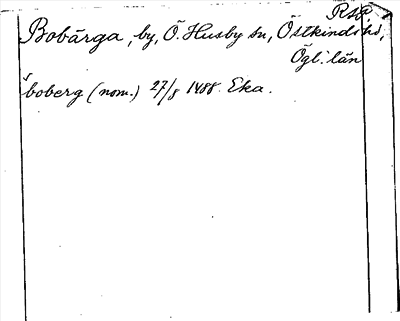 Rep.
Bobärga, by, Ö. Husby sn, Östkinds hd,
Ögl. län
boberg (nom.) 27/8 1488. Eka.